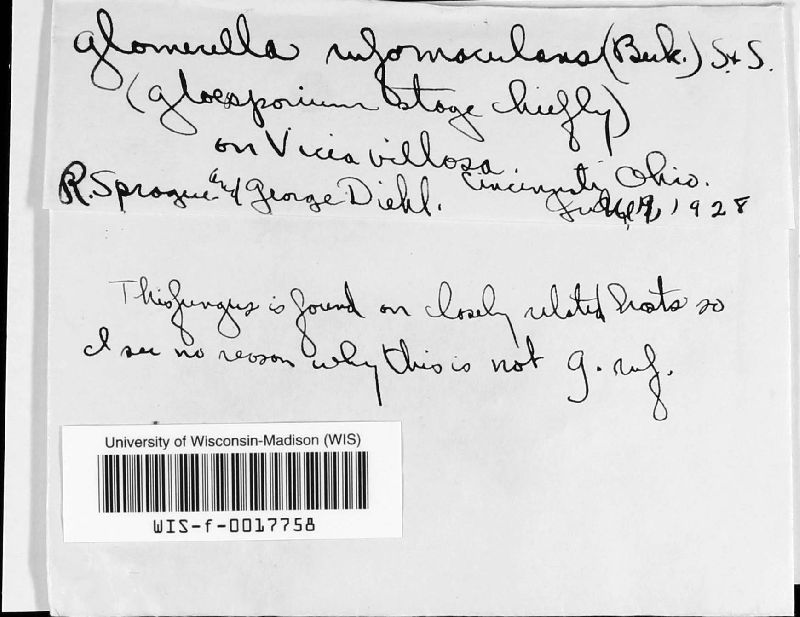 Glomerella rufomaculans (Berk.) S. & S.
(Gloesporium stage chiefly)
on Vicia villosa
R. Sprague and George Diehl. Cincinnati, Ohio.
1928
This fungus is found on closely related hosts so
I see no reason why this is not G. ruf.
University of Wisconsin-Madison (WIS)
WIS-f-0017758